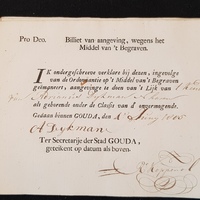 Pro Deo. Billet van aangeving, wegens het
Middel van 't Begraven.
IK ondergeschreeve verklare bij dezen, ingevolge
van de Ordonnantie op 't Middel van 't Begraven
geëmaneert, aangevinge te doen van 't Lijk van
als gehorende onder de Classis van d' onvermogende.
Gedaan binnen GOUDA, den 1805
A Dijkman
Ter Secretarije der Stad GOUDA,
geteikent op datum als boven.